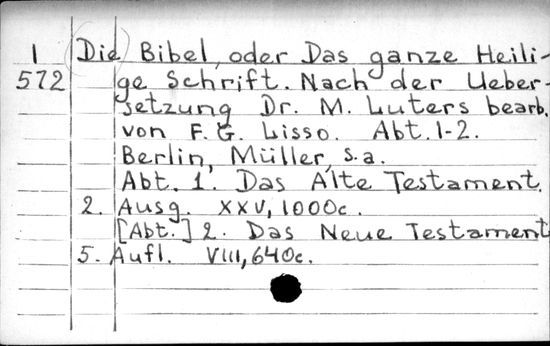 1 (Die) Bibel, oder Das ganze Heili-
572 ge Schrift. Nach der Ueber-
setzung Dr. M. Luters bearb.
von F. G. Lisso. Abt. 1-2.
Berlin, Müller, s.a.
Abt. 1. Das Alte Testament.
2. Ausg. XXV, 1000c.
[Abt.] 2. Das Neue Testament
5. Aufl. VIII, 640c.